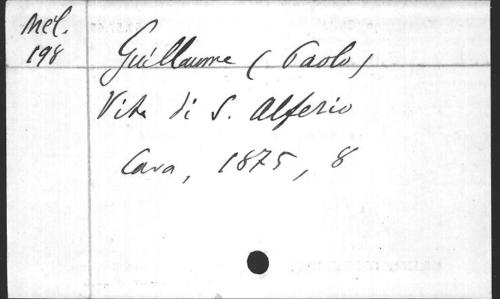 Mél.
198
Guillaume (Paolo)
Vita di S. Alferio
Cava, 1875, 8